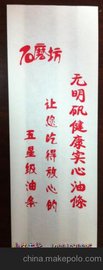 石磨坊
无明矾健康实心油條
让您吃得放心的
五星级油条